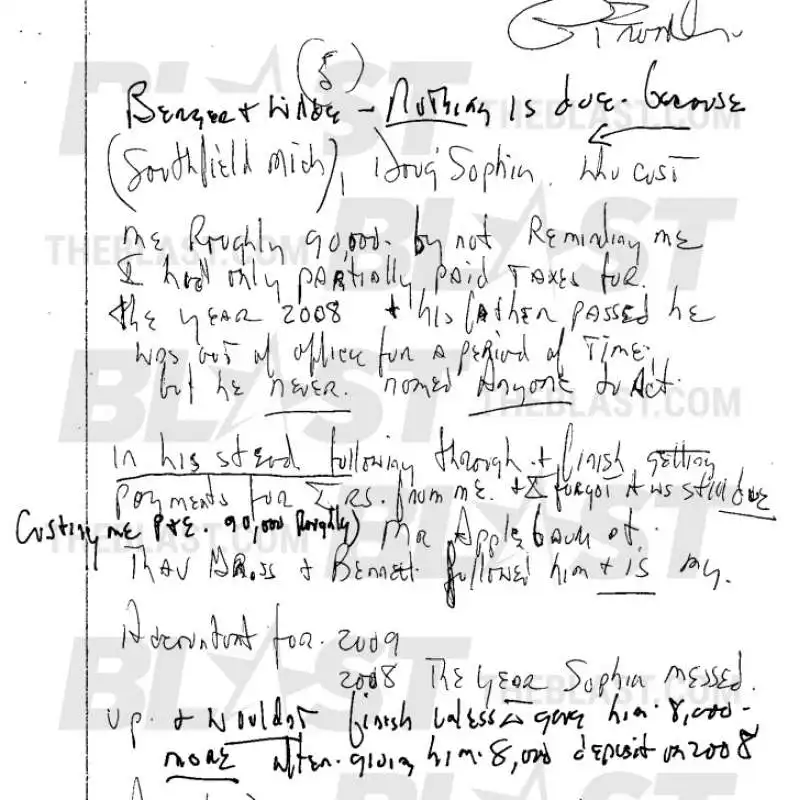 (5)
Berger + Wilde - Nothing is due. because
(Southfield Mich), Doug Sophia. who cost
me Roughly 90,000. by not Reminding me
I had only partially paid Taxes for.
the year 2008 + his father passed he
was out of office for a period of Time,
but he never. named Anyone to Act.
In his stead following through + finish getting
payments for I RS. from me. + I forgot it ws still due
Costing me P+E. 90,000 Roughly) Mr Applebaum of.
+ Bennett followed him + is my.
Accountant for. 2009
2008 The year Sophia messed.
up. + wouldnt finish unless I gave him. 8,000-
more after. giving him. 8,000 deposit on 2008
THEBLAST.COM
BLAST